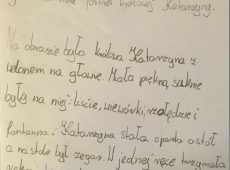 mnie portret królowej Katarzyny.
Na obrazie była królowa Katarzyna z
welonem na głowie. Miała piękną suknie
były na niej: liście, wiewiórki, żołędzie i
fontanna. Katarzyna stała oparta o stół
a na stole był zegar. W jednej ręce trzymała